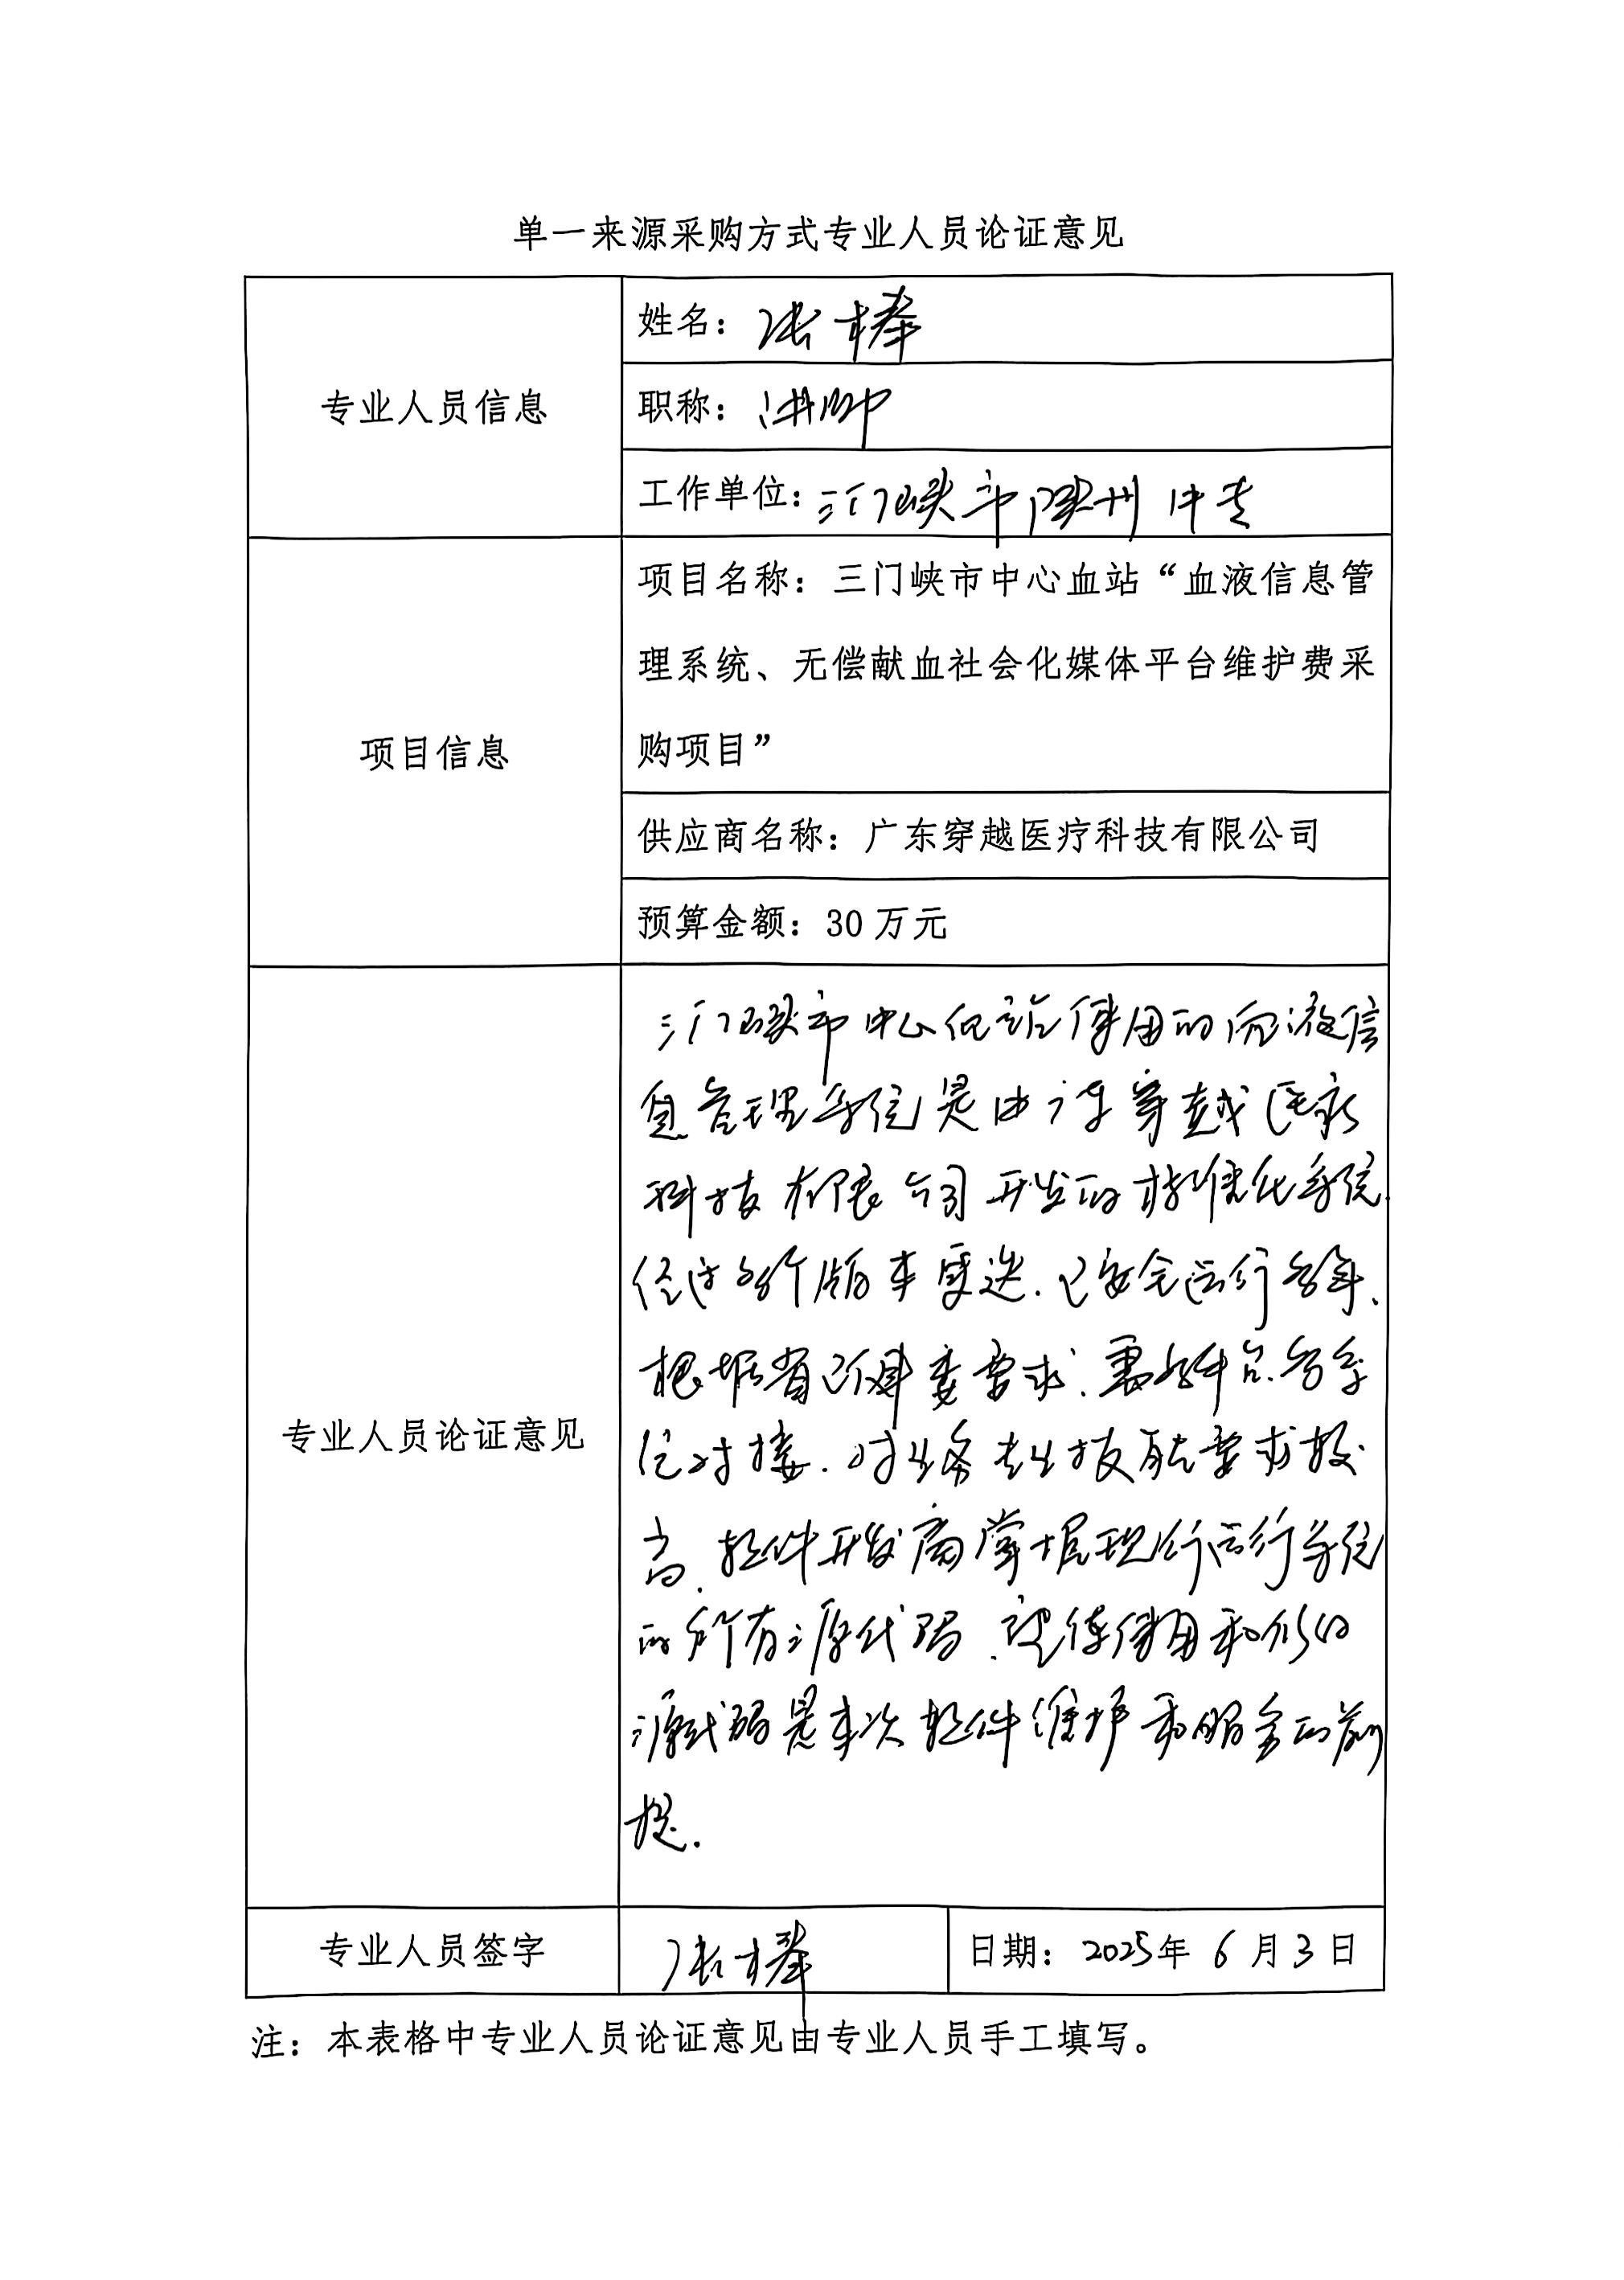 单一来源采购方式专业人员论证意见
专业人员信息
姓名：张棒
职称：讲师
工作单位：三门峡市陕州中专
项目信息
项目名称：三门峡市中心血站“血液信息管
理系统、无偿献血社会化媒体平台维护费采
购项目”
供应商名称：广东穿越医疗科技有限公司
预算金额：30万元
专业人员论证意见
三门峡市中心血站使用的血液信
息管理系统是由广东穿越医疗
科技有限公司开发的标准化系统
经过多个版本更迭.已安全运行多年、
根据省卫健委要求.需
对接.对业务专业技能要求较
高.软件开发商掌握现行运行系统
的所有源代码.使用和修改
源代码是本次软件维护和服务的前
提.
专业人员签字
张棒
日期：2025年6月3日
注：本表格中专业人员论证意见由专业人员手工填写。